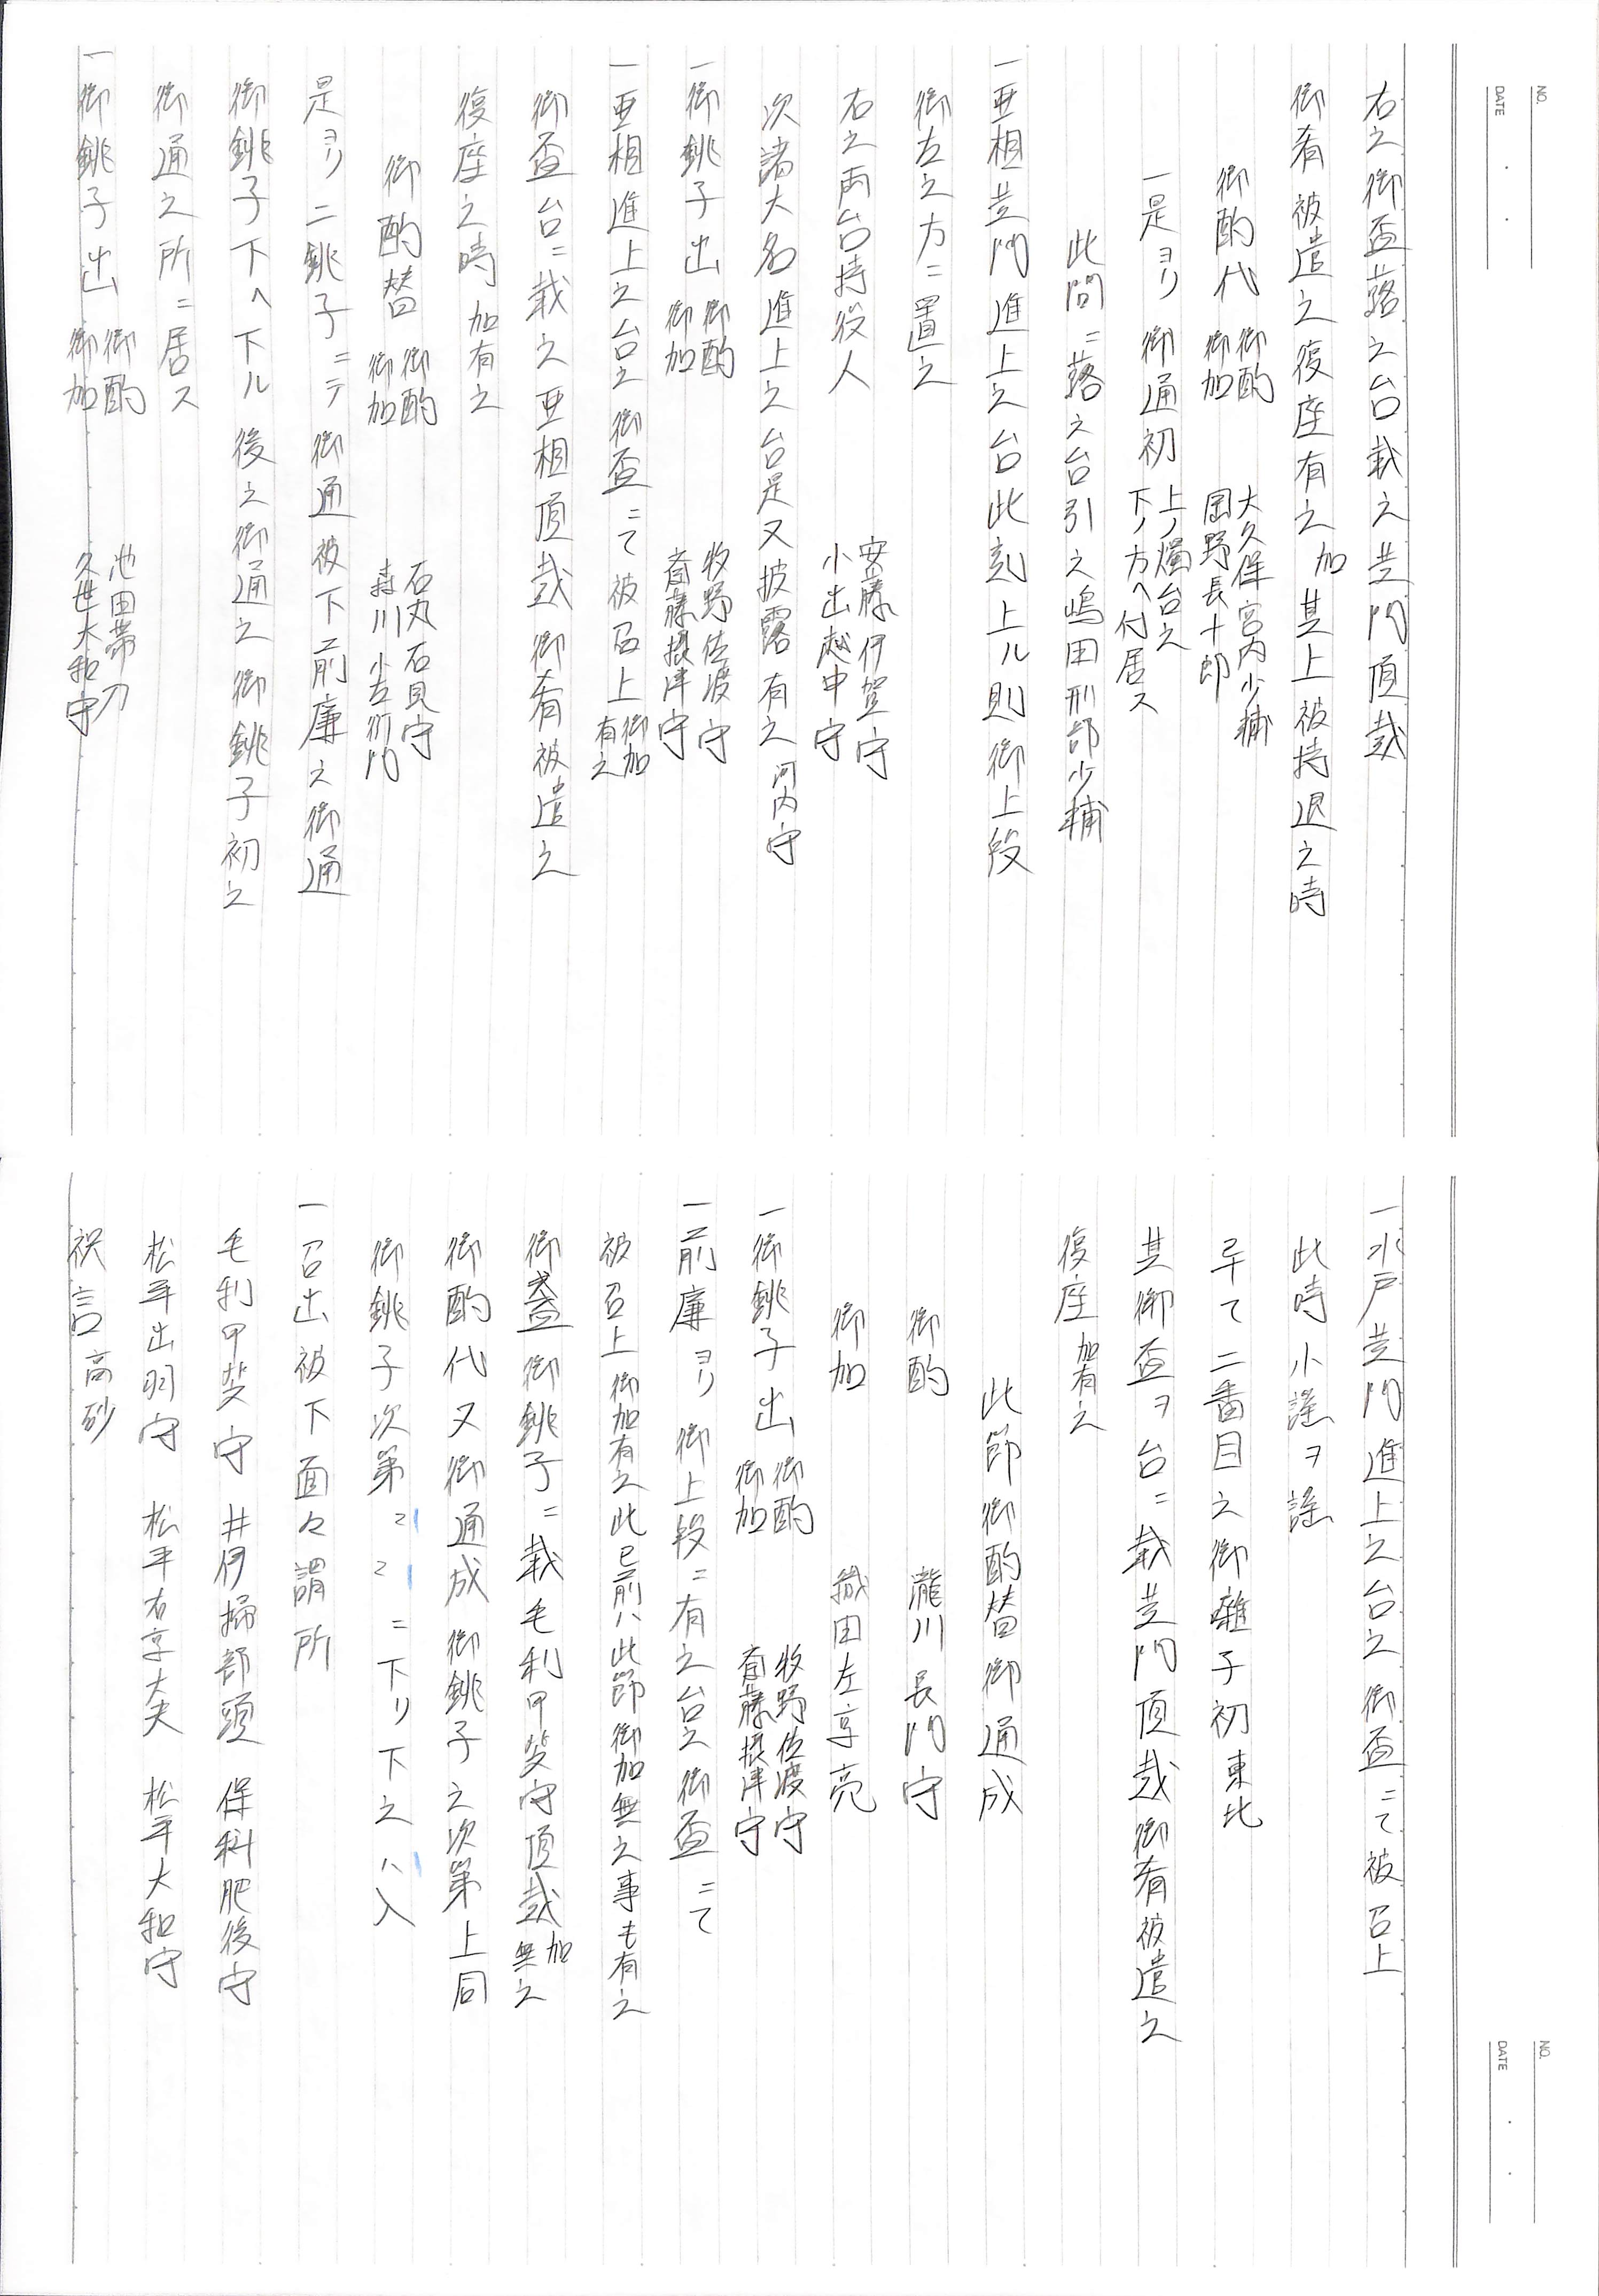 NO.
DATE
右之御盃蕗之台載之黄門頂戴
御肴被遣之復座有之加其上被持退之時
御酌代 御酌 大久保宮内少輔
御加 岡野長十郎
一是ヨリ御通初 上ノ燭台之
下ノ方ヘ付居ス
此間ニ蕗之台引之嶋田刑部少輔
一亜相黄門進上之台此刻上ル則御上段
御左之方ニ置之
右之両台持役人 安藤伊賀守
小出越中守
次諸大名進上之台是又披露有之河内守
一御銚子出 御酌 牧野佐渡守
御加 斎藤摂津守
一亜相進上之台之御盃ニて被召上御加有之
御盃台ニ載之亜相頂戴御肴被遣之
復座之時加有之
御酌替 御酌 石丸石見守
御加 森川小左衛門
是ヨリ二銚子ニテ御通被下前廉之御通
御銚子下ヘ下ル後之御通之御銚子初之
御通之所ニ居ス
一御銚子出 御酌 池田帯刀
御加 久世大和守
NO.
DATE
一水戸黄門進上之台之御盃ニて被召上
此時小謡ヲ謡
早て二番目之御囃子初東北
其御盃ヲ台ニ載黄門頂戴御肴被遣之
復座加有之
此節御酌替御通成
御酌 瀧川長門守
御加 織田左京亮
一御銚子出 御酌 牧野佐渡守
御加 斎藤摂津守
一前廉ヨリ御上段ニ有之台之御盃ニて
被召上御加有之此已前ハ此節御加無之事も有之
御盞御銚子ニ載毛利甲斐守頂戴加無之
御酌代又御通成御銚子之次第上同
御銚子次第〻〻ニ下リ下之ハ入
一召出被下面々謂所
毛利甲斐守 井伊掃部頭 保科肥後守
松平出羽守 松平右京大夫 松平大和守
祝言高砂